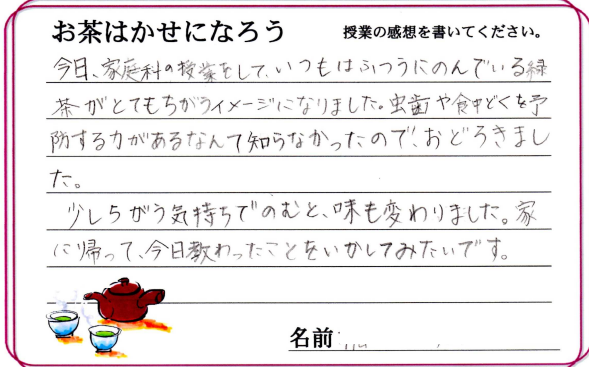 お茶はかせになろう 授業の感想を書いてください。
今日、家庭科の授業をして、いつもはふつうにのんでいる緑
茶がとてもちがうイメージになりました。虫歯や食中どくを予
防する力があるなんて知らなかったので、おどろきまし
た。
少しちがう気持ちでのむと、味も変わりました。家
に帰って、今日教わったことをいかしてみたいです。
名前